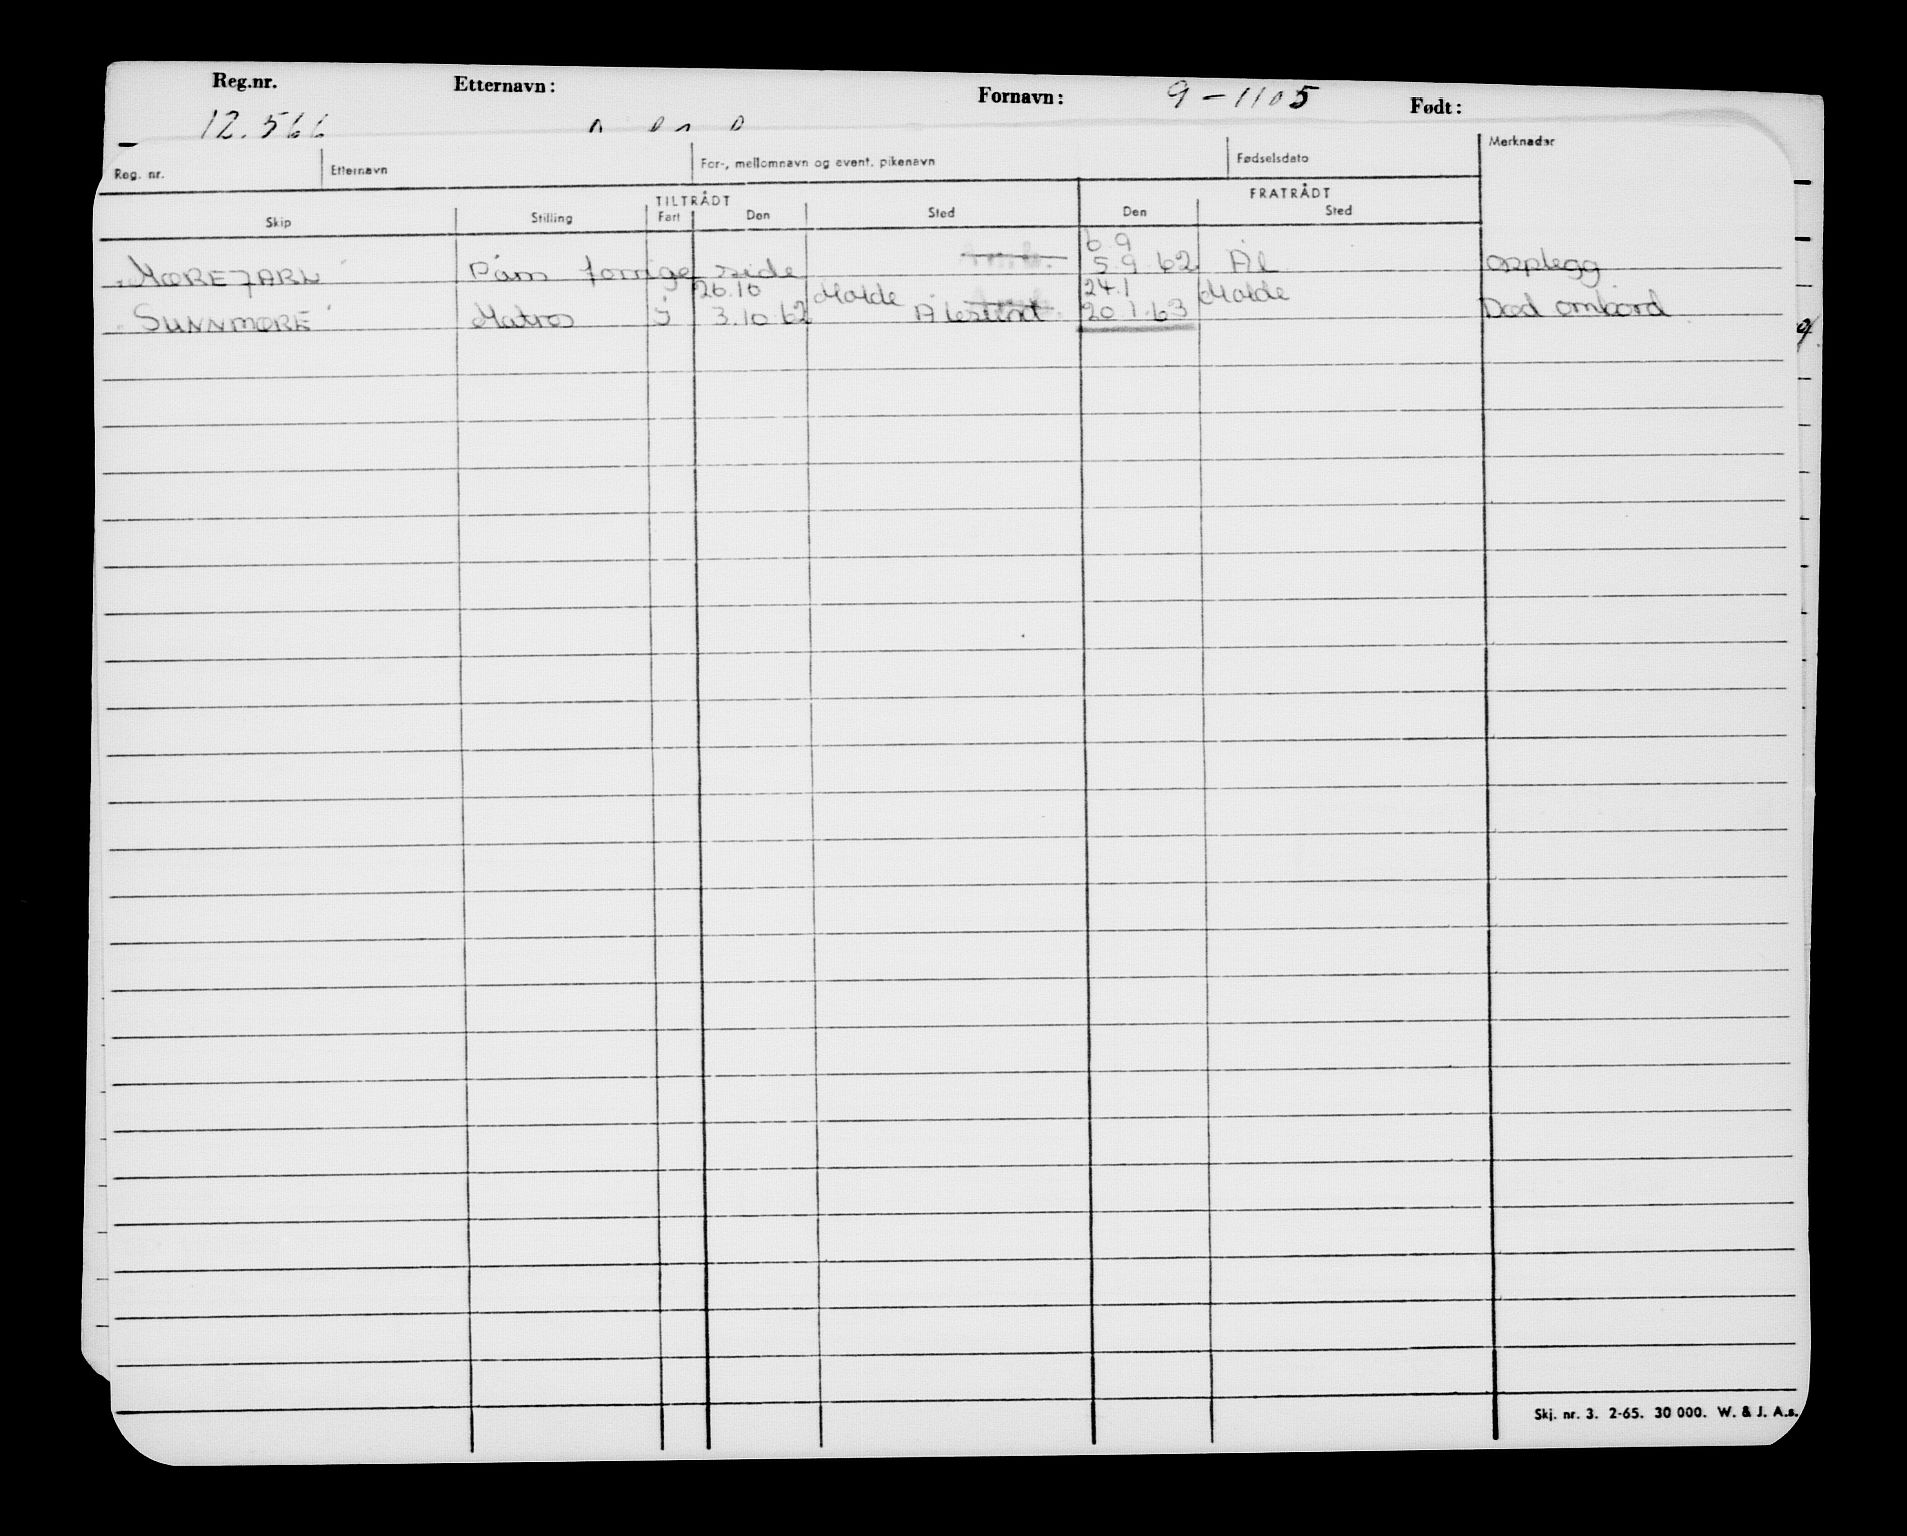 Reg.nr. Etternavn: Fornavn: 9-1105 Født:
12.566
Reg. nr. Etternavn For-, mellomnavn og event. pikenavn Fødselsdato Merknader
TILTRÅDT FRATRÅDT
Skip Stilling Fart Den Sted Den Sted
6.9
MØREJARL Påm forrige side 5.9.62 Ål opplegg
26.10 Molde 24.1 Molde
SUNNMØRE Matros J 3.10.62 Ålesund 20.1.63 Død ombord
Skj. nr. 3. 2-65. 30 000. W. & J. A.s.